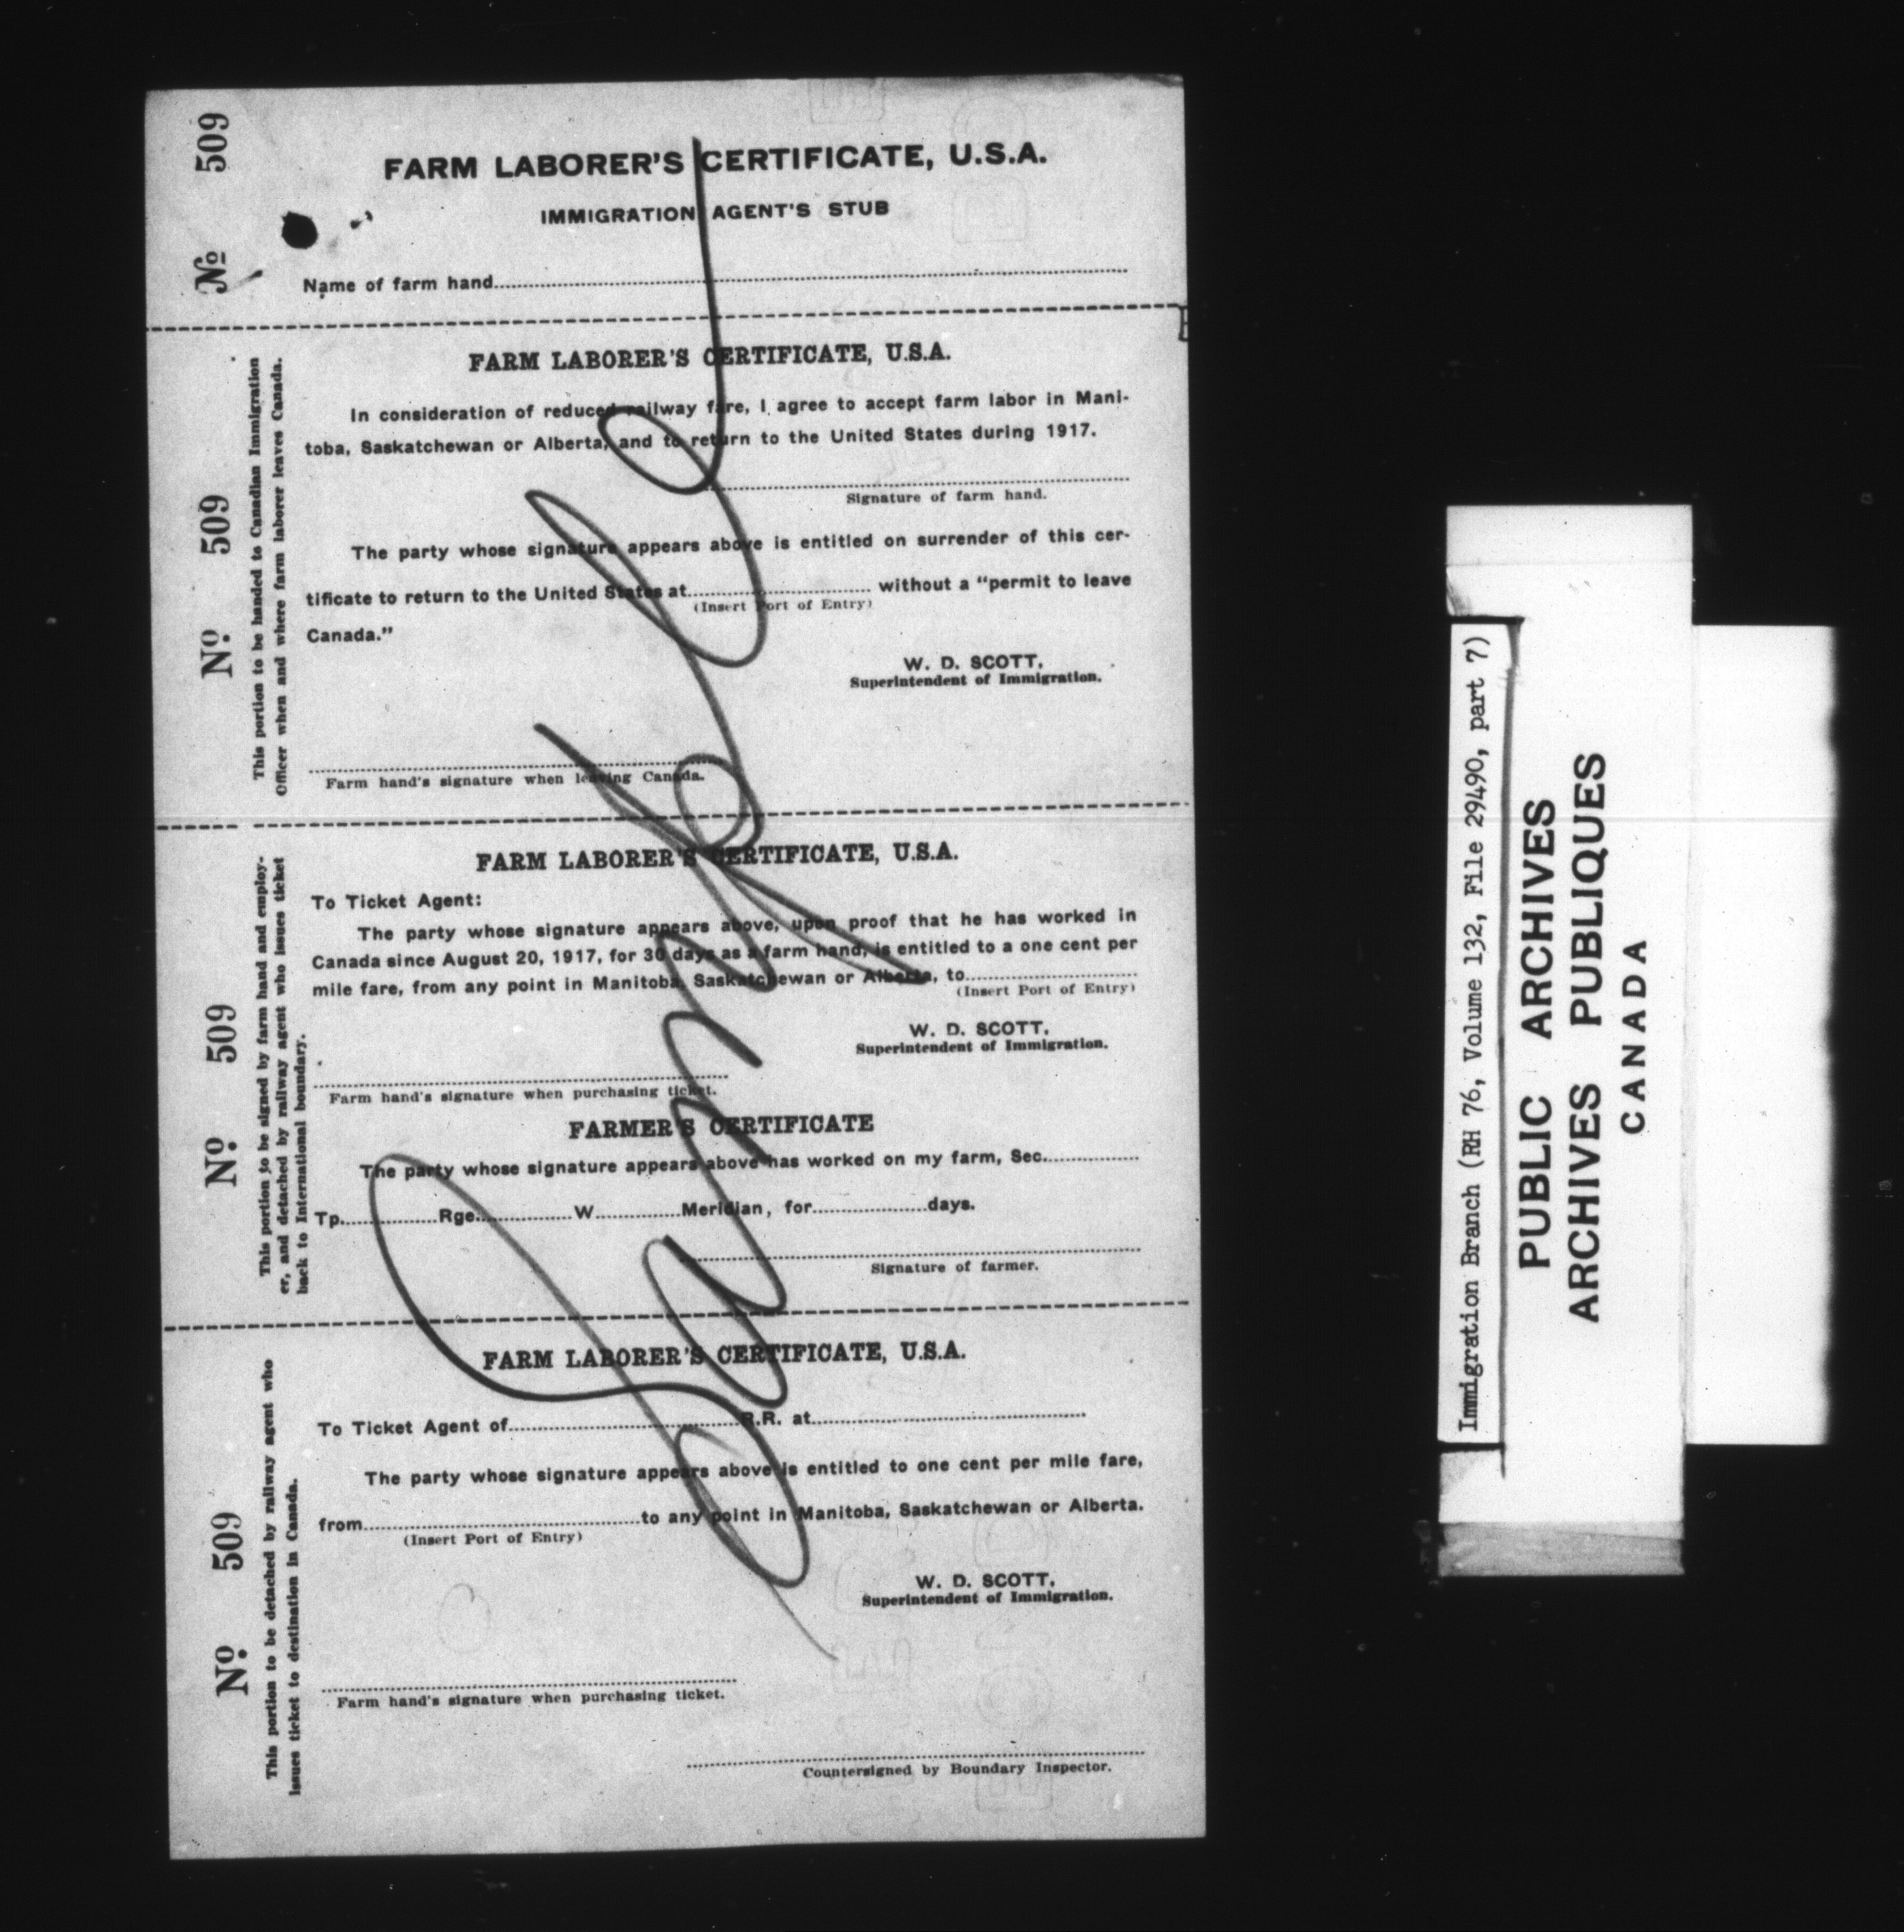 FARM LABORER'S CERTIFICATE, U.S.A.
IMMIGRATION AGENT'S STUB
№ 509
Name of farm hand
FARM LABORER'S CERTIFICATE, U.S.A.
In consideration of reduced railway fare, I agree to accept farm labor in Mani-
toba, Saskatchewan or Alberta, and to return to the United States during 1917.
Signature of farm hand.
The party whose signature appears above is entitled on surrender of this cer-
tificate to return to the United States at without a “permit to leave
(Insert Port of Entry)
Canada.”
W. D. SCOTT,
Superintendent of Immigration.
Farm hand's signature when leaving Canada.
Nº 509
This portion to be handed to Canadian Immigration
Officer when and where farm laborer leaves Canada.
FARM LABORER'S CERTIFICATE, U.S.A.
To Ticket Agent:
The party whose signature appears above, upon proof that he has worked in
Canada since August 20, 1917, for 30 days as a farm hand, is entitled to a one cent per
mile fare, from any point in Manitoba, Saskatchewan or Alberta, to
(Insert Port of Entry)
W. D. SCOTT,
Superintendent of Immigration.
Farm hand's signature when purchasing ticket.
FARMER'S CERTIFICATE
The party whose signature appears above has worked on my farm, Sec.
Tp. Rge. W. Meridian, for days.
Signature of farmer.
Nº 509
This portion to be signed by farm hand and employ-
er, and detached by railway agent who issues ticket
back to International boundary.
FARM LABORER'S CERTIFICATE, U.S.A.
To Ticket Agent of R.R. at
The party whose signature appears above is entitled to one cent per mile fare,
from to any point in Manitoba, Saskatchewan or Alberta.
(Insert Port of Entry)
W. D. SCOTT,
Superintendent of Immigration.
Farm hand's signature when purchasing ticket.
Countersigned by Boundary Inspector.
Nº 509
This portion to be detached by railway agent who
issues ticket to destination in Canada.
Sample
Immigration Branch (RH 76, Volume 132, File 29490, part 7)
PUBLIC ARCHIVES
ARCHIVES PUBLIQUES
CANADA